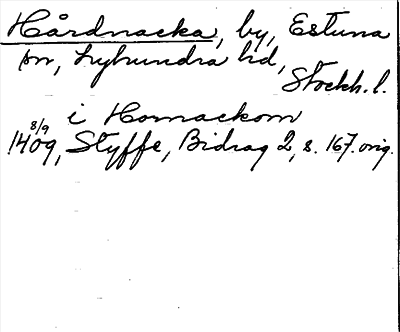 Hårdnacka, by, Estuna
sn, Lyhundra hd,
Stockh. l.
i Hornackom
8/9
1409, Styffe, Bidrag 2, s. 167. orig.